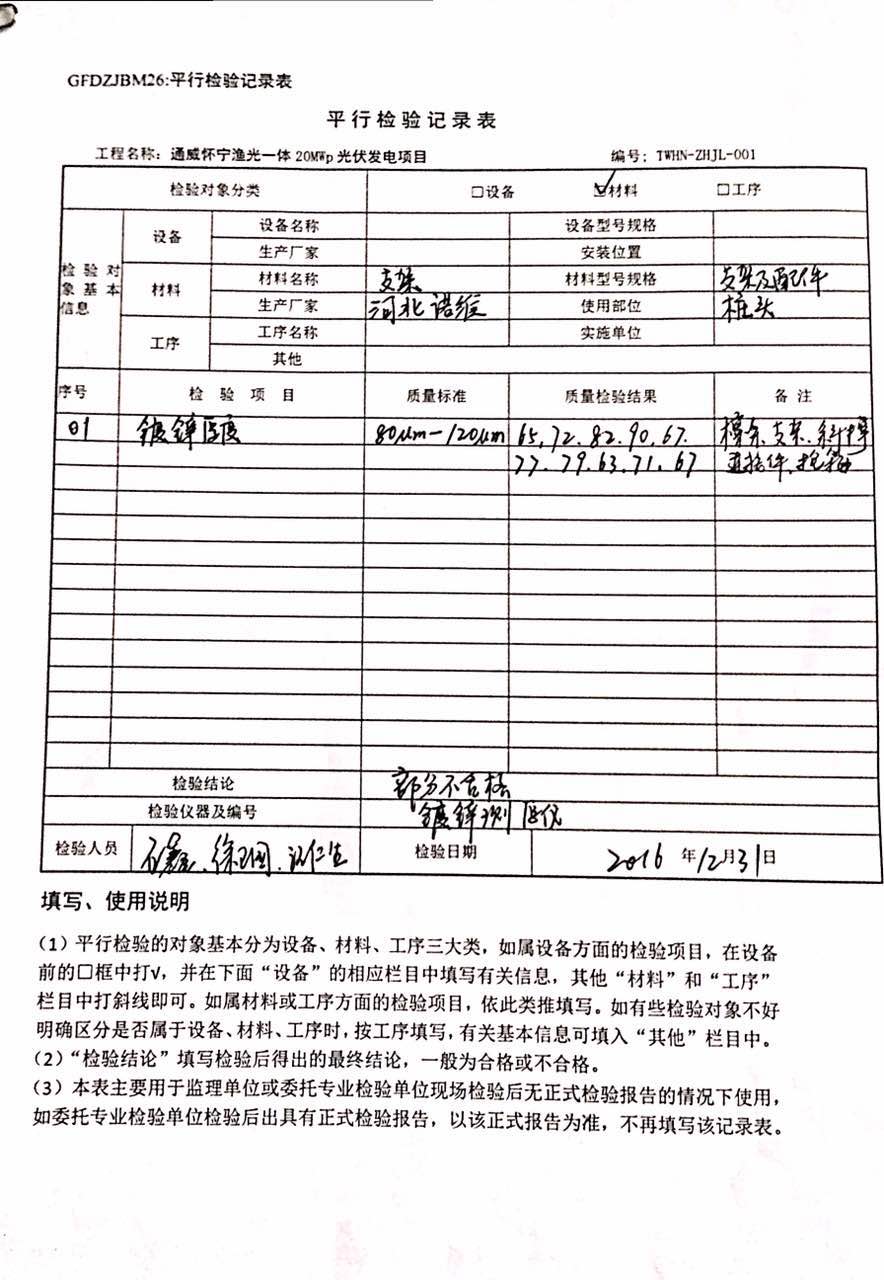 GFDZJBM26:平行检验记录表
平行检验记录表
工程名称：通威怀宁渔光一体 20MWp 光伏发电项目 编号：TWHN-ZHJL-001
检验对象分类 □设备 ☑材料 □工序
检验对象基本信息 设备 设备名称 设备型号规格
生产厂家 安装位置
材料 材料名称 支架 材料型号规格 支架及配件
生产厂家 河北诺继 使用部位 桩头
工序 工序名称 实施单位
其他
序号 检验项目 质量标准 质量检验结果 备注
01 镀锌厚度 80μm-120μm 65.72.82.90.67. 檩条.支架.斜撑
77.79.63.71.67 连接件.抱箍
检验结论 部分不合格
检验仪器及编号 镀锌测厚仪
检验人员 检验日期 2016 年12月31日
填写、使用说明
（1）平行检验的对象基本分为设备、材料、工序三大类，如属设备方面的检验项目，在设备
前的□框中打√，并在下面“设备”的相应栏目中填写有关信息，其他“材料”和“工序”
栏目中打斜线即可。如属材料或工序方面的检验项目，依此类推填写。如有些检验对象不好
明确区分是否属于设备、材料、工序时，按工序填写，有关基本信息可填入“其他”栏目中。
（2）“检验结论”填写检验后得出的最终结论，一般为合格或不合格。
（3）本表主要用于监理单位或委托专业检验单位现场检验后无正式检验报告的情况下使用，
如委托专业检验单位检验后出具有正式检验报告，以该正式报告为准，不再填写该记录表。